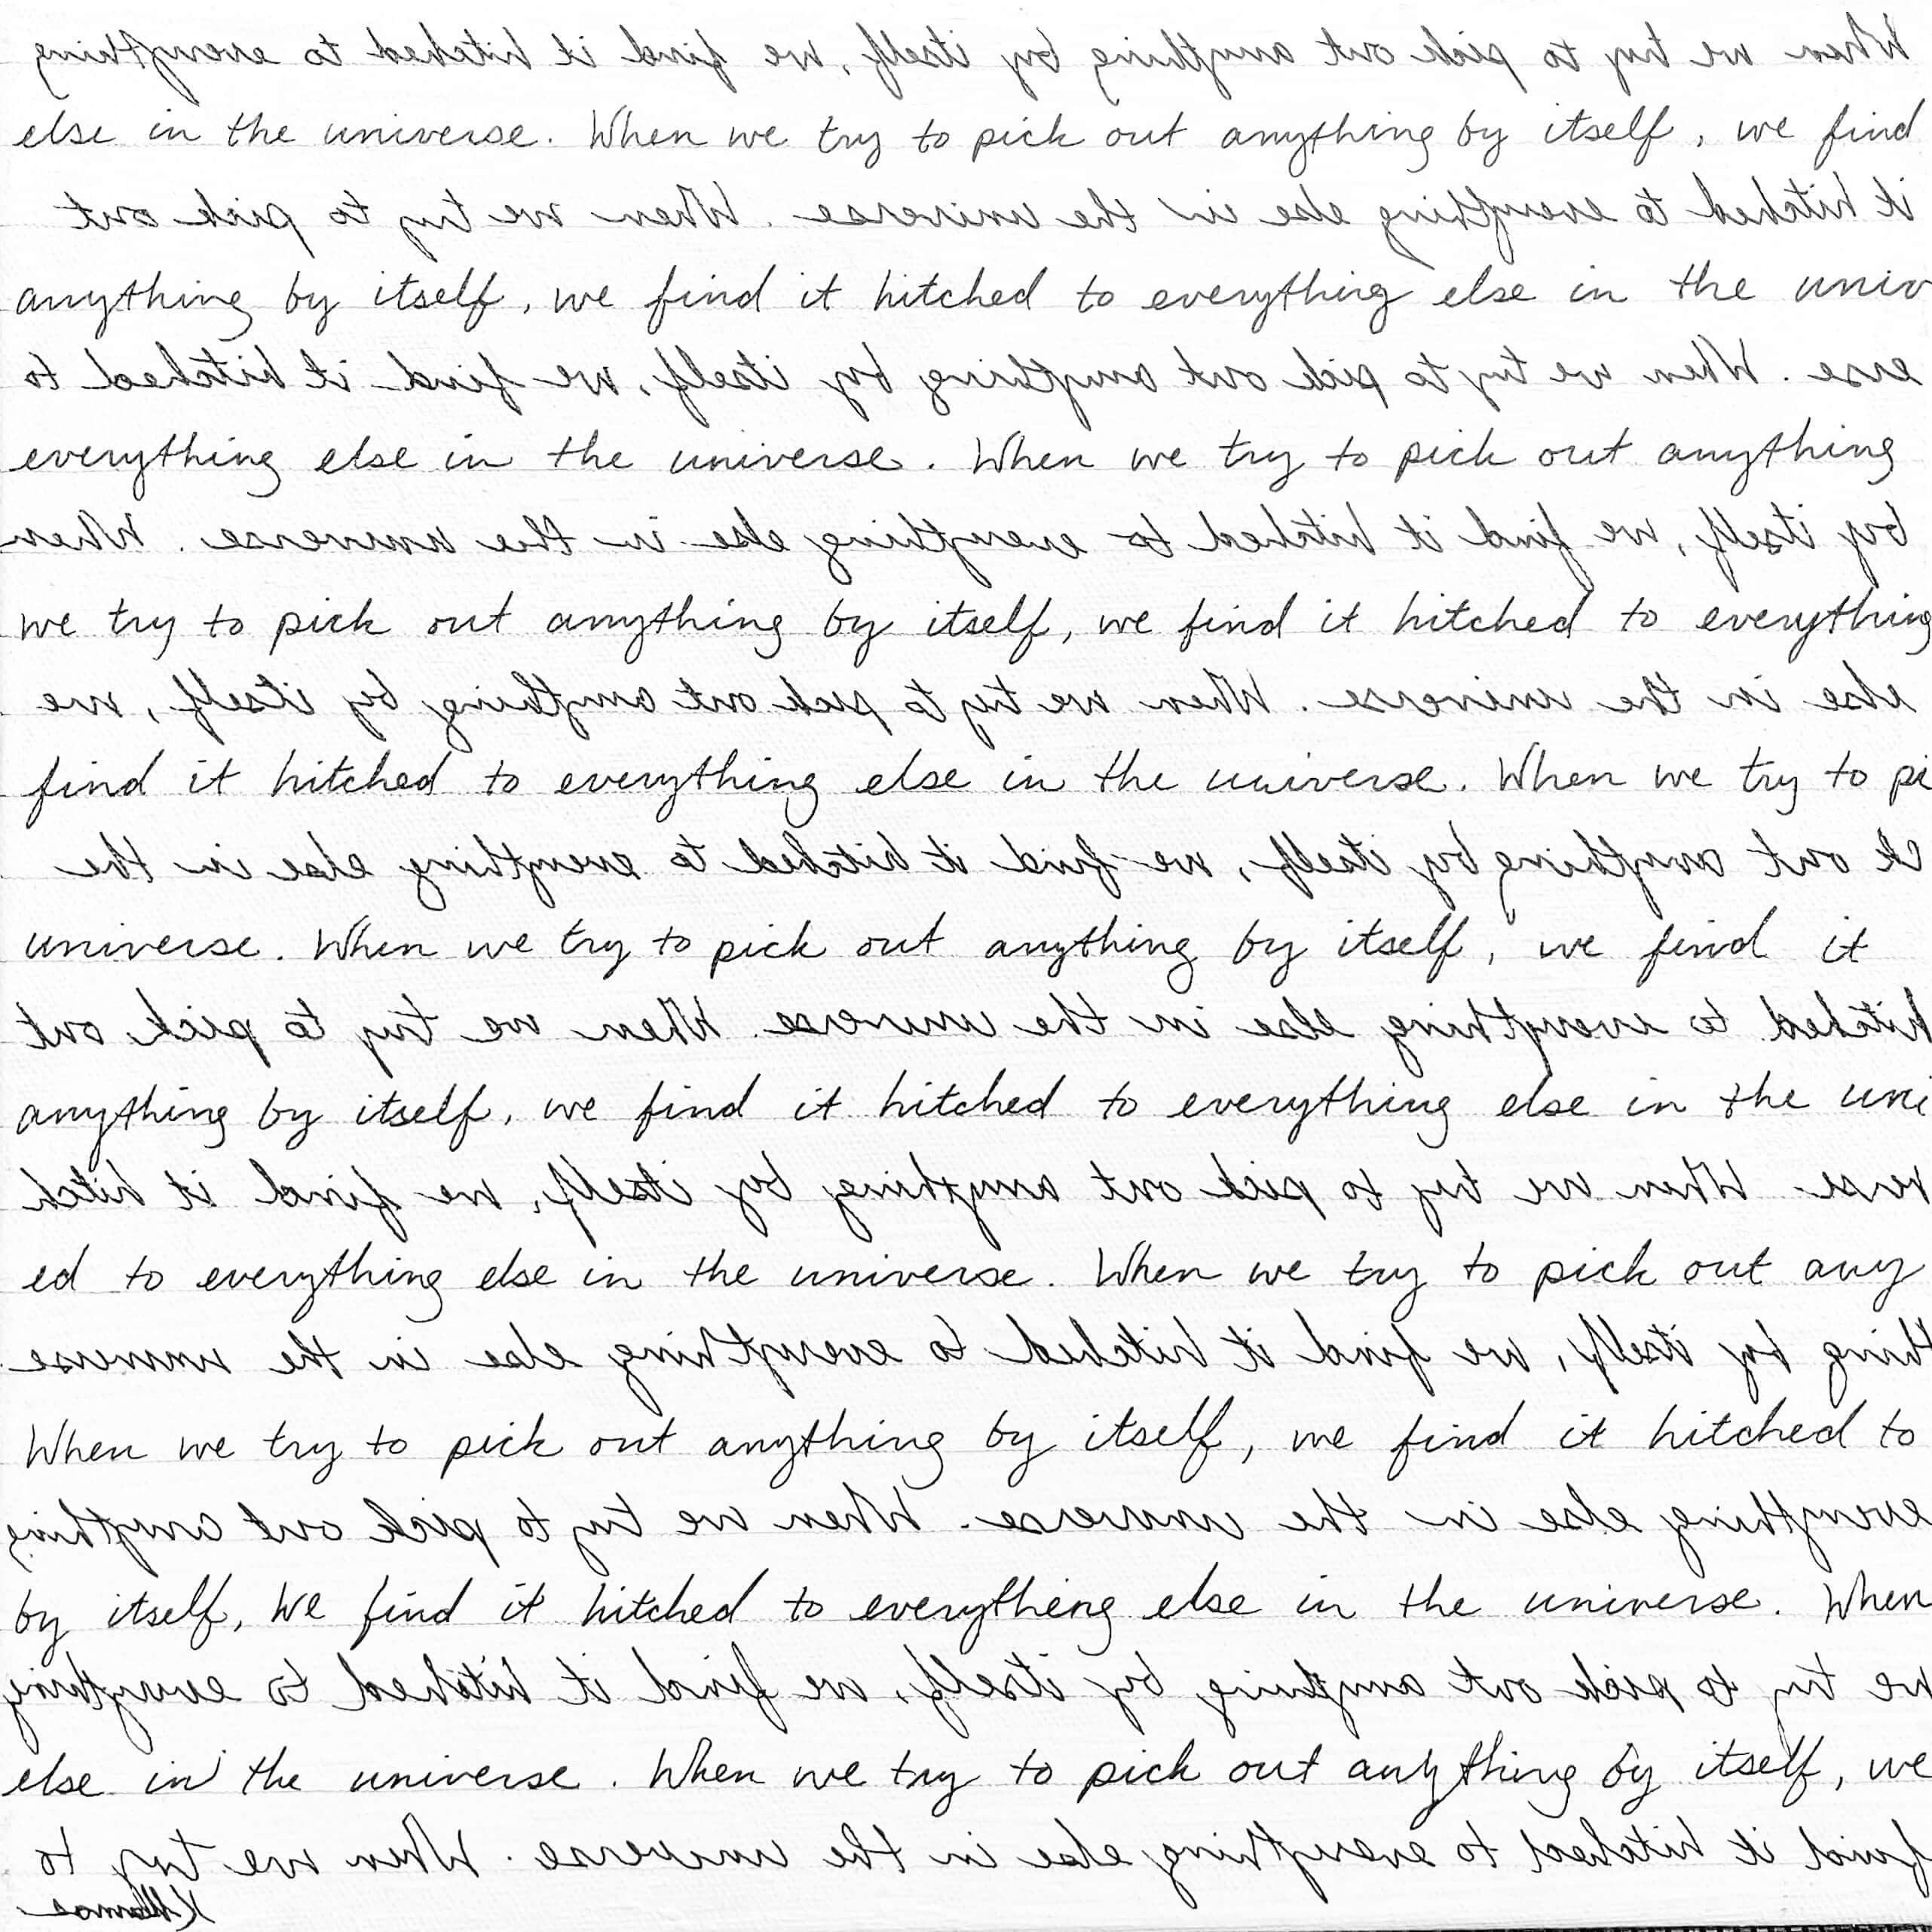 When we try to pick out anything by itself, we find it hitched to everything
else in the universe. When we try to pick out anything by itself, we find
it hitched to everything else in the universe. When we try to pick out
anything by itself, we find it hitched to everything else in the univ
erse. When we try to pick out anything by itself, we find it hitched to
everything else in the universe. When we try to pick out anything
by itself, we find it hitched to everything else in the universe. When
we try to pick out anything by itself, we find it hitched to everything
else in the universe. When we try to pick out anything by itself, we
find it hitched to everything else in the universe. When we try to pi
ck out anything by itself, we find it hitched to everything else in the
universe. When we try to pick out anything by itself, we find it
hitched to everything else in the universe. When we try to pick out
anything by itself, we find it hitched to everything else in the uni
verse. When we try to pick out anything by itself, we find it hitch
ed to everything else in the universe. When we try to pick out any
thing by itself, we find it hitched to everything else in the universe.
When we try to pick out anything by itself, we find it hitched to
everything else in the universe. When we try to pick out anything
by itself, we find it hitched to everything else in the universe. When
we try to pick out anything by itself, we find it hitched to everything
else in the universe. When we try to pick out anything by itself, we
find it hitched to everything else in the universe. When we try to